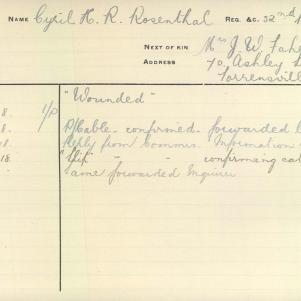 NAME Cyril H. R. Rosenthal REG. &C. 32nd
NEXT OF KIN Mrs J. W. Fahe
ADDRESS 70, Ashley S
Torrensville
"Wounded"
8. 1/P
8. P/Cable - confirmed. forwarded
8. Reply from Commis. Information
18. " - " - confirming cab
ame forwarded Inquirer